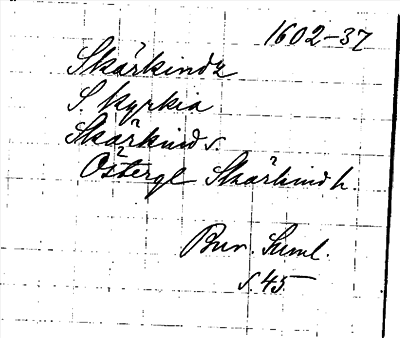 1602-37
Skärkindz
S. kyrkia
Skärkind s.
Östergl Skärkind h.
Bur. Suml.
s. 45